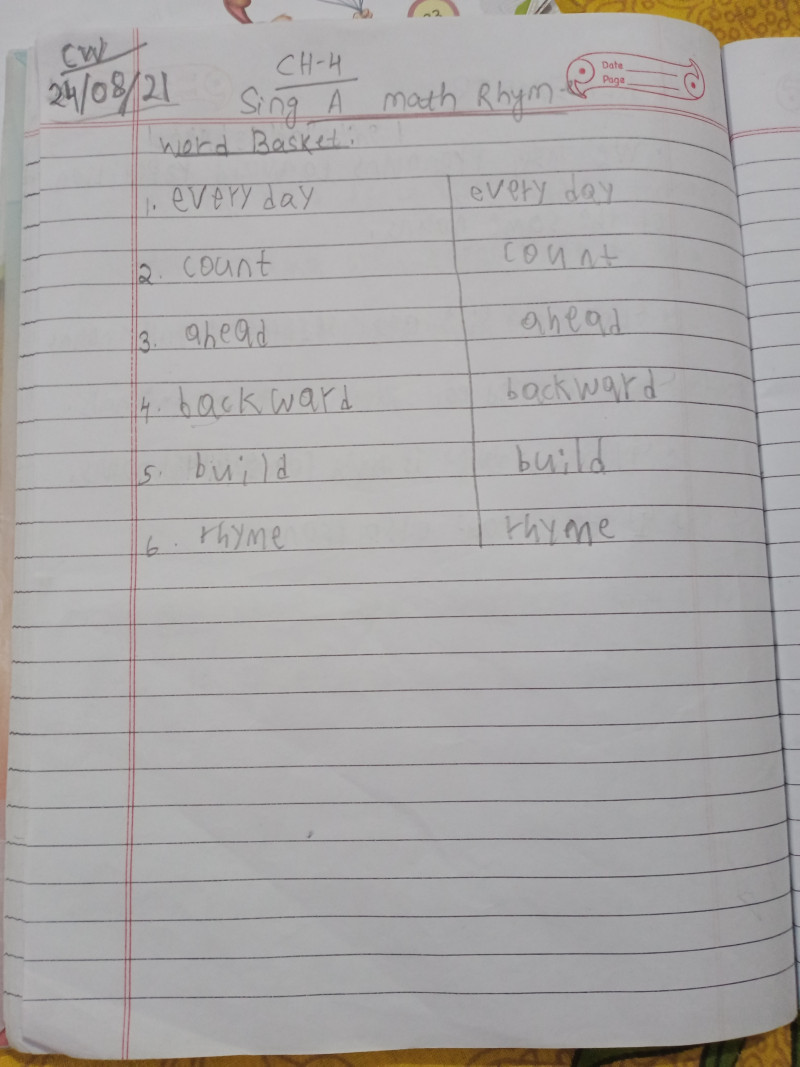 CW
24/08/21
CH-4
Sing A math Rhym
Date
Page
Word Basket:
1. every day every day
2. count count
3. ahead ahead
4. backward backward
5. build build
6. rhyme rhyme